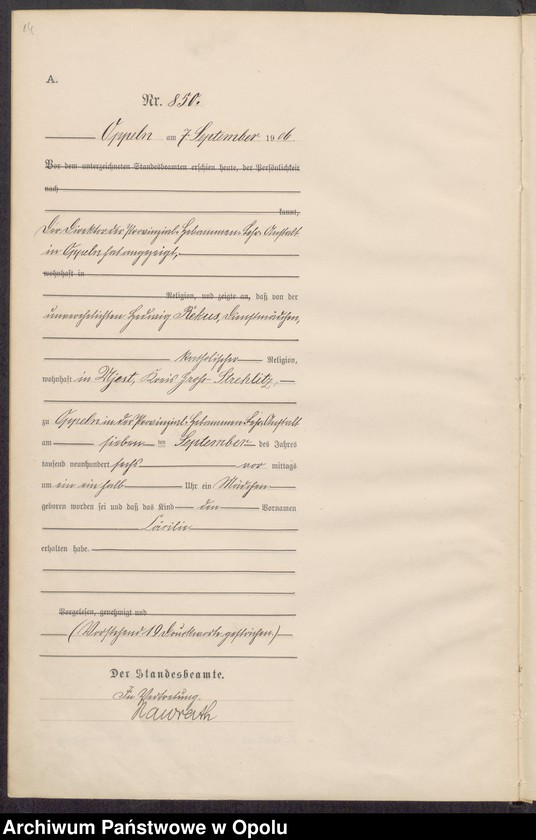 14
A.
Nr. 850.
Oppeln am 7. September 1906.
Vor dem unterzeichneten Standesbeamten erschien heute, der Persönlichkeit
nach
kannt,
Der Direktor der Provinzial-Hebammen-Lehr-Anstalt
in Oppeln hat angezeigt,
wohnhaft in
Religion, und zeigte an, daß von der
unverehelichten Hedwig Rekus, Dienstmädchen,
katholischer Religion,
wohnhaft in Ujest, Kreis Groß-Strehlitz,
zu Oppeln in der Provinzial-Hebammen-Lehr-Anstalt
am sieben ten September des Jahres
tausend neunhundert sechs vor mittags
um ein ein halb Uhr ein Mädchen
geboren worden sei und daß das Kind den Vornamen
Cäcilie
erhalten habe.
Vorgelesen, genehmigt und
(Vorstehend 19 Druckworte gestrichen.)
Der Standesbeamte.
In Vertretung.
Nawrath
Archiwum Państwowe w Opolu